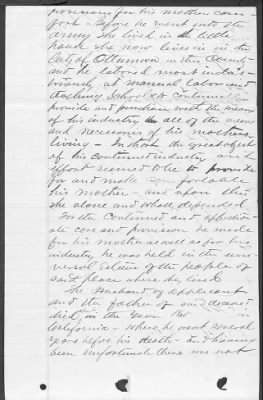 provisions for his mothers com-
fort - Before he went into the
army she lived in the little
house she now lives in in the
City of Ottumwa in this County -
and he labored most indus-
triously at manual labor and
teaching school to Continue to
provide and purchase with the means
of his industry all of the means
and necessaries of his mothers
living - In short the great object
of his continued industry and
effort seemed to be to provide
for and make comfortable
his mother - and upon this
she alone and wholly depended
For the Continued and affection-
ate care and provision he made
for his mother as well as for his
industry he was held in the uni-
versal esteem of the people of
said place where he lived
The Husband of applicant
and the father of said deceased
died in the Year in
California - where he went several
years before his death - and having
been unfortunate there was not